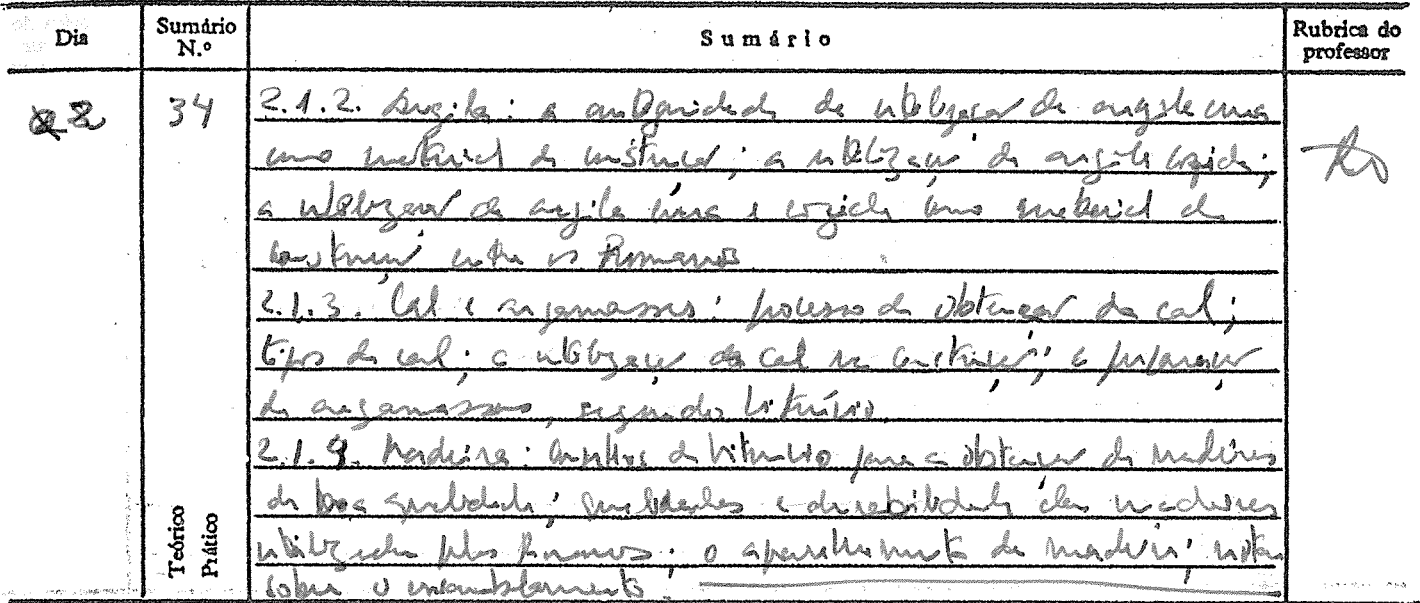 Dia
Sumário N.º
Sumário
Rubrica do professor
2
34
2.1.2. Argila: a antiguidade da utilização da argila crua
como material de construção; a utilização da argila cozida;
a utilização da argila crua e cozida como material de
construção entre os Romanos
2.1.3. Cal e argamassas: processo de obtenção da cal;
tipos de cal; a utilização da cal na construção; a preparação
de argamassas, segundo Vitrúvio
2.1.4. Madeira: conselhos de Vitrúvio para a obtenção de madeiras
de boa qualidade; qualidades e durabilidade das madeiras
utilizadas pelos Romanos; o aparelhamento da madeira; notas
sobre o ensamblamento.
Teórico
Prático